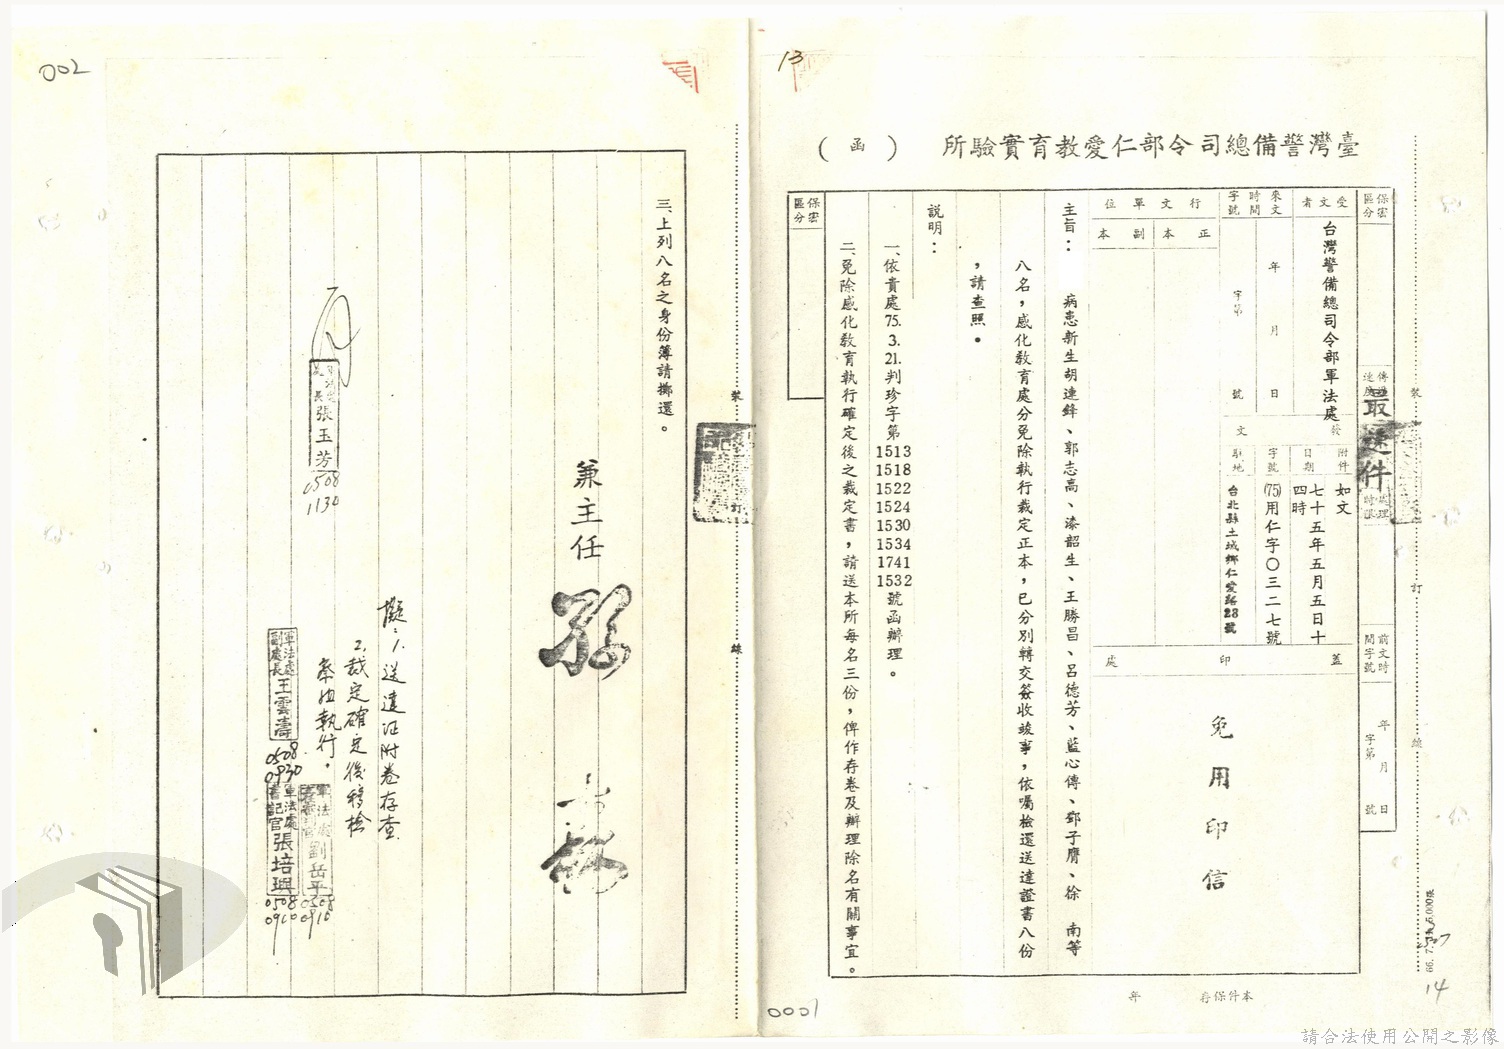 13
臺灣警備總司令部仁愛教育實驗所 （函）
保密區分
傳遞速度
最速件
處理時限
前文時間字號
年 月 日
字第 號
受文者
台灣警備總司令部軍法處
來文時間字號
年 月 日
字第 號
行文單位
正本
副本
發文
附件
如文
日期
七十五年五月五日十四時
字號
(75)用仁字〇三二七號
駐地
台北縣土城鄉仁愛路23號
蓋印處
免用印信
主旨：病患新生胡達鋒、郭志高、漆韶生、王勝昌、呂德芳、藍心傳、鄧子膺、徐 南等
八名，感化教育處分免除執行裁定正本，已分別轉交簽收竣事，依囑檢還送達證書八份
，請查照。
說明：
一、依貴處75.3.21.判珍字第1513 1518 1522 1524 1530 1534 1741 1532號函辦理。
二、免除感化教育執行確定後之裁定書，請送本所每名三份，俾作存卷及辦理除名有關事宜。
保密區分
裝
訂
線
本件保存 年
14
0001
002
三、上列八名之身份簿請擲還。
兼主任
擬：1.送達证附卷存查.
2.裁定確定後移檢
察官執行.
張玉芳
0508
1130
軍法處副處長王雲濤
0508
0930
軍法處書記官張培興
0508
0910
軍法處
劉岳平
0508
0910
裝
訂
線
請合法使用公開之影像